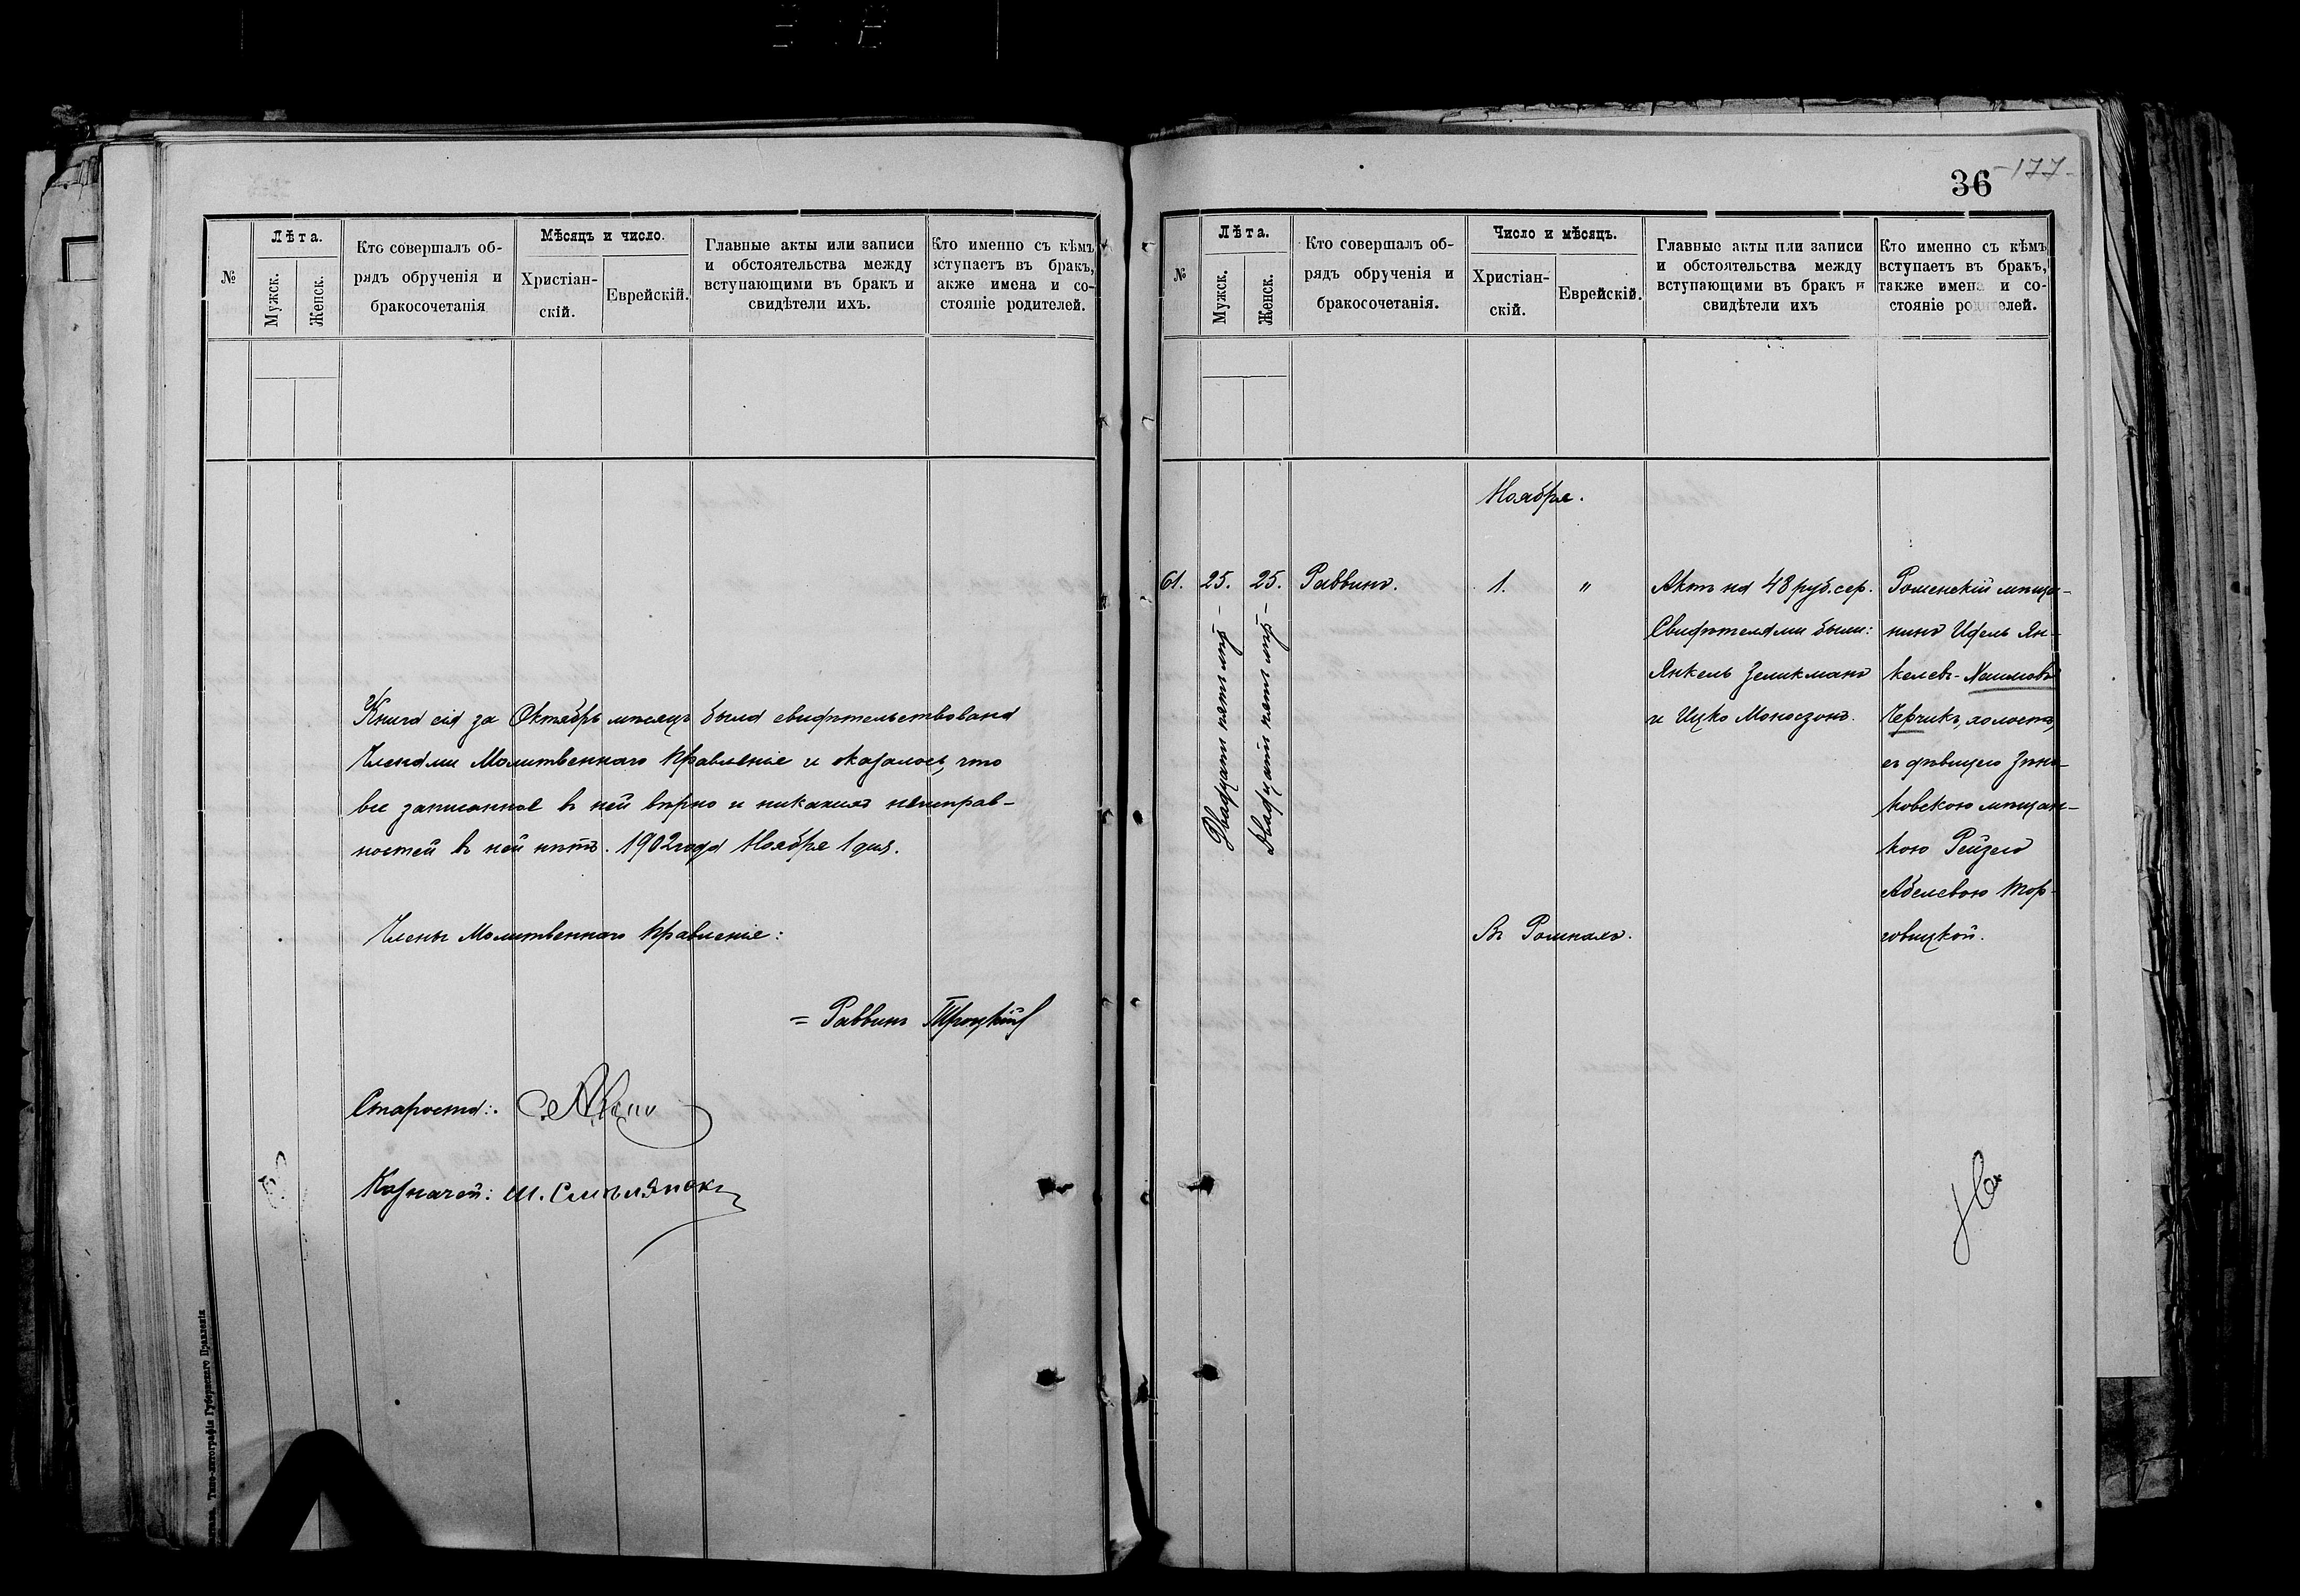 №
Лѣта.
Мужск.
Женск.
Кто совершалъ об-
рядъ обрученія и
бракосочетанія
Мѣсяцъ и число.
Христіан-
скій.
Еврейскій.
Главные акты или записи
и обстоятельства между
вступающими въ бракъ и
свидѣтели ихъ.
Кто именно съ кѣмъ
вступаетъ въ бракъ,
акже имена и со-
стояніе родителей.
Книга сія за Октябрь мѣсяцъ была свидѣтельствована
Членами Молитвеннаго Правленіе и оказалось, что
все записанное въ ней вѣрно и никакихъ неисправ-
ностей въ ней нѣтъ. 1902 года Ноября 1 дня.
Члены Молитвеннаго Правленіе:
= Раввинъ Троцкій
Староста:
Казначей: Ш. Смолянск
Типо-литографія Губернскаго Правленія
36
-177-
№
Лѣта.
Мужск.
Женск.
Кто совершалъ об-
рядъ обрученія и
бракосочетанія.
Число и мѣсяцъ.
Христіан-
скій.
Еврейскій.
Главные акты или записи
и обстоятельства между
вступающими въ бракъ и
свидѣтели ихъ
Кто именно съ кѣмъ
вступаетъ въ бракъ,
также имена и со-
стояніе родителей.
Ноября.
61. 25. 25. Раввинъ. 1. " Актъ на 48 руб. сер.
Двадцати пяти лѣтъ
Двадцати пяти лѣтъ
Свидѣтелями были:
Янкель Зеликманъ
и Ицко Моносзонъ.
Роменскій мѣща-
нинъ Идель Ян-
келев-Хаимовъ
Черчикъ, холостъ,
съ дѣвицею Зѣнь-
ковскою мѣщан-
кою Рейзею
Абелевою Тор-
говицкой.
Въ Ромнахъ.